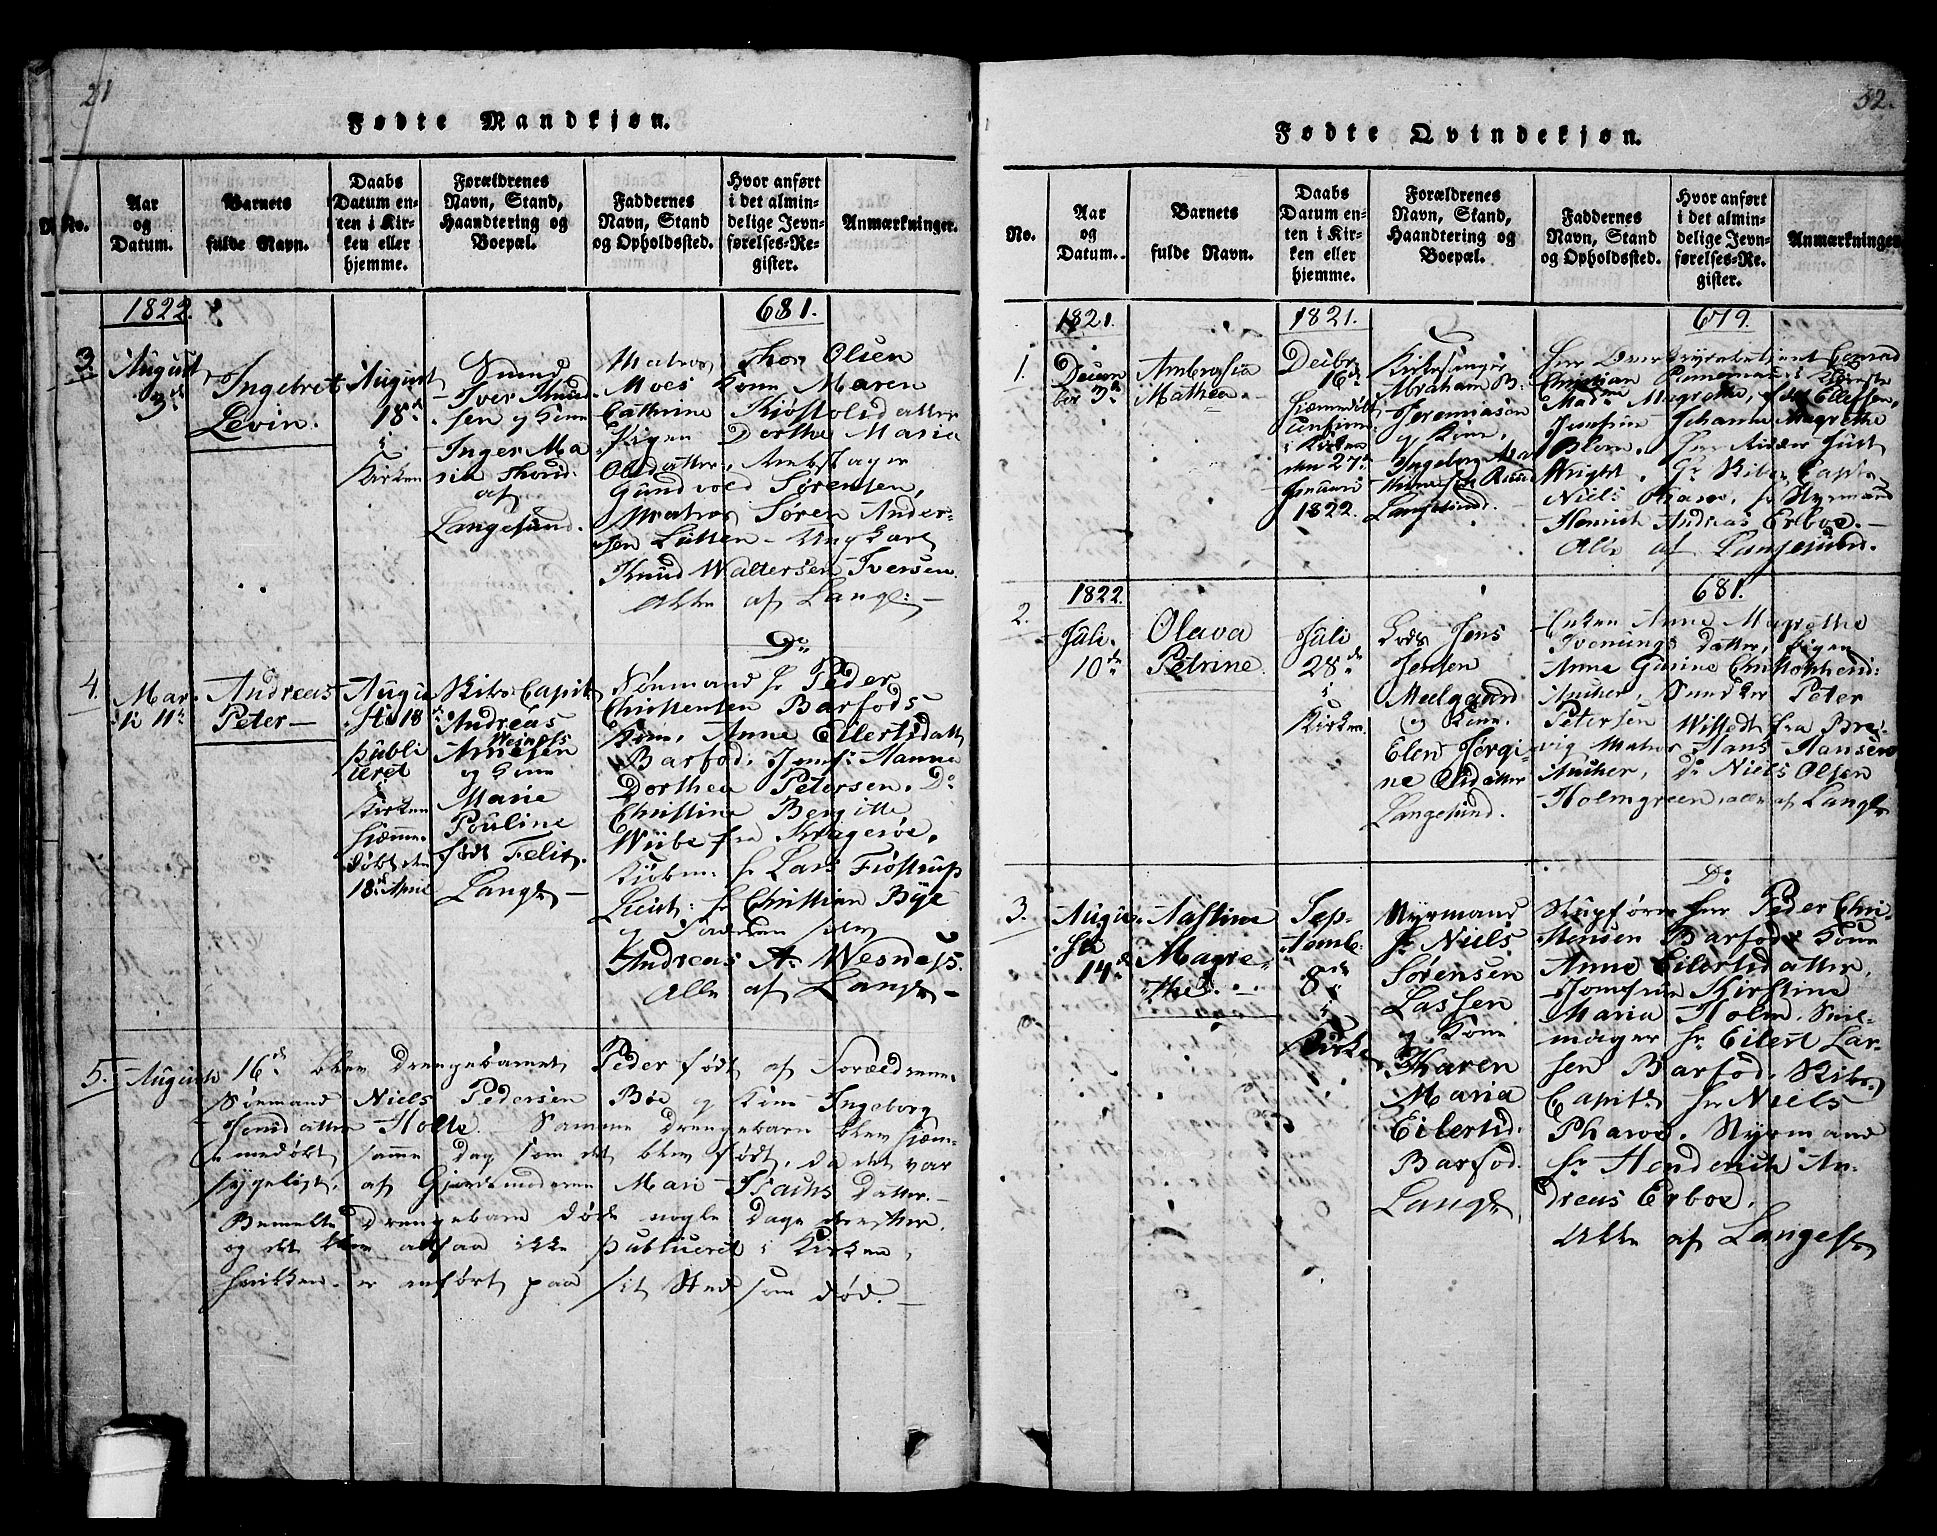 21
Fødte Mandkjøn.
No.
Aar
og
Datum.
Barnets
fulde Navn.
Daabs
Datum en-
ten i Kir-
ken eller
hjemme.
Forældrenes
Navn, Stand,
Haandtering og
Boepæl.
Faddernes
Navn, Stand
og Opholdssted.
Hvor anført
i det almin-
delige Jevn-
førelses-Re-
gister.
Anmærkninger.
1822.
681.
3.
August
3d
Ingebret
Levin.
August
18d
i
Kirken
Iver Knud-
sen og Kone
Inger Ma-
ria
af
Langesund.
Matros Thor Olsen
Moes Kone Maren
Cathrine Kjøstolsdatter
Pigen Dorthe Maria
Olsdatter,
Gundvold Sørensen,
Matros Søren Ander-
sen Lütken - Ungkarl
Knud Waltersen Iversen.
Alle af Lang:
Do
4.
Mar-
ti 11te
Andreas
Peter
Augu-
sti 18
publi
ceret
i
Kirken
hjemme-
døbt den
18de April
Skibs Capit
Andreas
Wesnes
Arnesen
og Kone
Marie
Pouline
født Felix.
Lang
Sr Peder
Christensen Barfods
Kone, Anne Eilertsdatt
Barfod. Jomf: Hanna
Dorthea Petersen. Do
Christine Bergitte
Wiibe fra Kragerøe.
Kiøbm: Sr Lars Frøstrup
Sr Christian Bye
og Faderen selv
Andreas A. Wesness.
Alle af Lang
5.
August 16d blev Drengebarnet Peder født af Forældrene
Niels Pedersen Bøe og Kone Ingeborg
Jensdatter Holte. Samme Drengebarn blev hjem-
medøbt samme Dag som det blev født, da det var
sygeligt. af Gjordemoderen Mari Isachs Datter.
Bemelte Drengebarn døde nogle Dage derefter,
og det blev altsaa ikke publiceret i Kirken,
hvilken er anført paa sit Sted som død.
52.
Fødte Qvindekjøn.
No.
Aar
og
Datum.
Barnets
fulde Navn.
Daabs
Datum en-
ten i Kir-
ken eller
hjemme.
Forældrenes
Navn, Stand,
Haandtering og
Boepæl.
Faddernes
Navn, Stand
og Opholdssted.
Hvor anført
i det almin-
delige Jevn-
førelses-Re-
gister.
Anmærkninger.
1821.
1821.
679.
1.
Decem-
ber 3de
Ambrosia
Mathea.
Decbr
16de
i Kirken
den 27de
Januari
1822.
Kirkesanger
Abraham B.
Jeremiasen
og Kone,
Ingebor
Langesund.
Conrad
Christian
Magrethe, født Ellefsen,
Jomfru Johanne Magrethe
Blom, Just
Wright, Sr Skibs Capt
Niels Pharo, Sr Styrmand
Henrich Andreas Erboe.
Alle af Langesund.
1822.
681.
2.
Juli
10de
Olava
Petrine
Juli
28de
i
Kirken
Lods Jens
Jensen
Melgaard
og Kone
Elen Jørgi-
ne Olsdatter
Langesund.
Enken Anne Magrethe
Datter, Pigen
Anne Gurine Christophersd:
Ancher, Peter
Petersen Wistedt fra Bre-
vig Matros Hans Hansen
Ancher, Do Niels Olsen
Holmgreen alle af Lang
Do
3.
Augu-
sti
14de
Aastine
Magre-
the
Sep-
temb
8de
i
Kirken
Styrmand
Sr Niels
Sørensen
Lassen
og Kone
Karen
Maria
Eilertsd.
Barfod.
Lang
Skipfører Herr Peder Chri-
stensen Barfods Kone
Anne Eilertsdatter.
Jomfrue Kirstine
Maria Holm. Seil-
mager Sr Eilert Lar-
sen Barfod. Skibs
Capit Hr Niels
Pharoe. Styrmand
Sr Henderich An-
dreas Erboe.
Alle af Lange